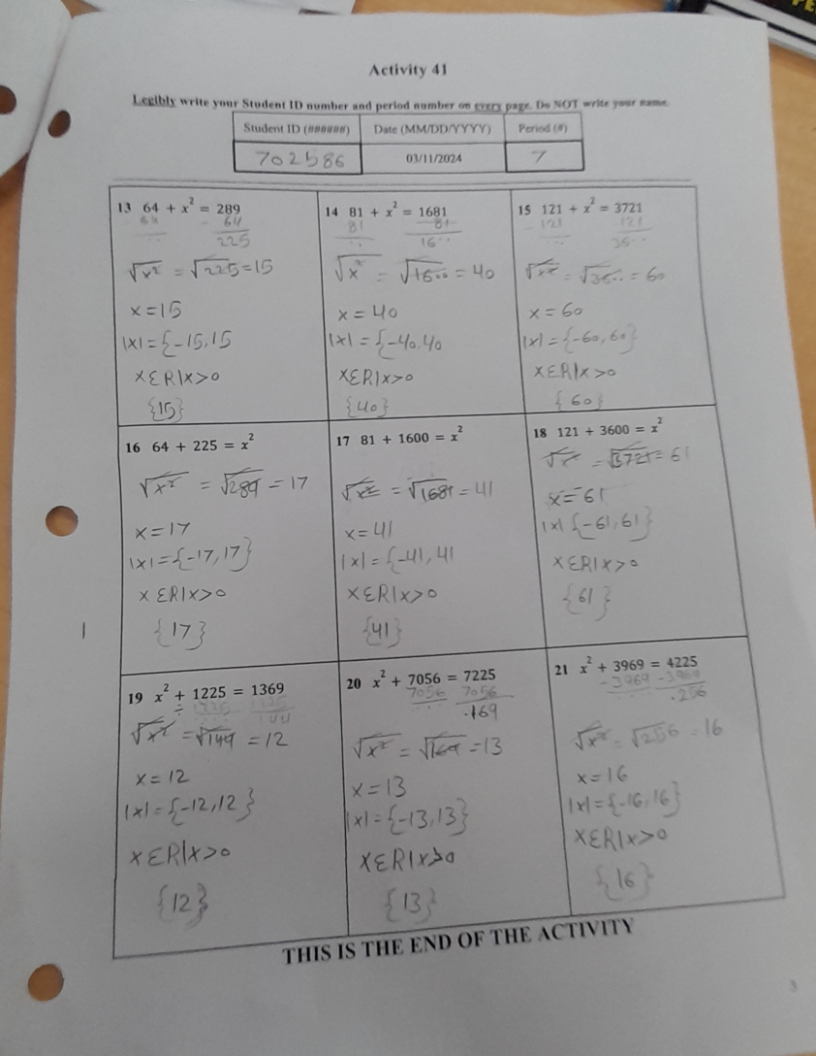 Activity 41
Legibly write your Student ID number and period number on every page. Do NOT write your name.
Student ID (######) Date (MM/DD/YYYY) Period (#)
702586 03/11/2024 7
13 64 + x² = 289
- 64 - 64
225
√x² = √225 = 15
x = 15
|x| = {-15, 15
xεR|x>0
{15}
14 81 + x² = 1681
81 - 81
16··
√x² = √1600 = 40
x = 40
|x| = {-40, 40
xεR|x>0
{40}
15 121 + x² = 3721
- 121 121
36··
√x² = √3600 = 60
x = 60
|x| = {-60, 60}
xεR|x>0
{60}
16 64 + 225 = x²
√x² = √289 = 17
x = 17
|x| = {-17, 17}
xεR|x>0
{17}
17 81 + 1600 = x²
√x² = √1681 = 41
x = 41
|x| = {-41, 41
xεR|x>0
{41}
18 121 + 3600 = x²
√x² = √3721 = 61
x = 61
|x| {-61, 61}
xεR|x>0
{61}
19 x² + 1225 = 1369
- 1225 1225
144
√x² = √144 = 12
x = 12
|x| = {-12, 12}
xεR|x>0
{12}
20 x² + 7056 = 7225
7056 7056
169
√x² = √169 = 13
x = 13
|x| = {-13, 13}
xεR|x>0
{13}
21 x² + 3969 = 4225
- 3969 - 3969
256
√x² = √256 = 16
x = 16
|x| = {-16, 16}
xεR|x>0
{16}
THIS IS THE END OF THE ACTIVITY
3